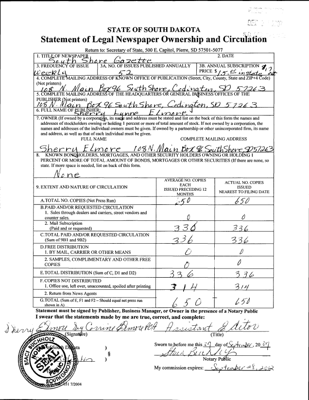 STATE OF SOUTH DAKOTA
Statement of Legal Newspaper Ownership and Circulation
Return to: Secretary of State, 500 E. Capitol, Pierre, SD 57501-5077
1. TITLE OF NEWSPAPER 2. DATE
South Shore Gazette
3. FREQUENCY OF ISSUE 3A. NO. OF ISSUES PUBLISHED ANNUALLY 3B. ANNUAL SUBSCRIPTION
Weekly 52 PRICE $
4. COMPLETE MAILING ADDRESS OF KNOWN OFFICE OF PUBLICATION (Street, City, County, State and ZIP+4 Code)
(Not printers)
108 N. Main Box 96 South Shore, Codington, SD 57263
5. COMPLETE MAILING ADDRESS OF THE HEADQUARTERS OF GENERAL BUSINESS OFFICES OF THE
PUBLISHER (Not printers)
108 N. Main Box 96 South Shore, Codington, SD 57263
6. FULL NAME OF PUBLISHER:
Sherry Lynne Elmore
7. OWNER (If owned by a corporation, its name and address must be stated and list on the back of this form the names and
addresses of stockholders owning or holding 1 percent or more of total amount of stock. If not owned by a corporation, the
names and addresses of the individual owners must be given. If owned by a partnership or other unincorporated firm, its name
and address, as well as that of each individual must be given.
FULL NAME COMPLETE MAILING ADDRESS
Sherry Elmore 108 N Main Box 96 South Shore, SD 57263
8. KNOWN BONDHOLDERS, MORTGAGES, AND OTHER SECURITY HOLDERS OWNING OR HOLDING 1
PERCENT OR MORE OF TOTAL AMOUNT OF BONDS, MORTGAGES OR OTHER SECURITIES (If there are none, so
state. If more space is needed, list on back of this form.
None
9. EXTENT AND NATURE OF CIRCULATION
AVERAGE NO. COPIES
EACH
ISSUED PRECEDING 12
MONTHS
ACTUAL NO. COPIES
ISSUED
NEAREST TO FILING DATE
A. TOTAL NO. COPIES (Net Press Run) 650 650
B. PAID AND/OR REQUESTED CIRCULATION
1. Sales through dealers and carriers, street vendors and
counter sales. 0 0
2. Mail Subscription
(Paid and or requested) 336 336
C. TOTAL PAID AND/OR REQUESTED CIRCULATION
(Sum of 9B1 and 9B2) 336 336
D. FREE DISTRIBUTION
1. BY MAIL, CARRIER OR OTHER MEANS 0 0
2. SAMPLES, COMPLIMENTARY AND OTHER FREE
COPIES 0 0
E. TOTAL DISTRIBUTION (Sum of C, D1 and D2) 336 336
F. COPIES NOT DISTRIBUTED
1. Office use, left over, unaccounted, spoiled after printing 314 314
2. Return from News Agents
G. TOTAL (Sum of E, F1 and F2 - Should equal net press run
shown in A) 650 650
Statement must be signed by Publisher, Business Manager, or Owner in the presence of a Notary Public
I swear that the statements made by me are true, correct, and complete:
Sherry Elmore by Corrine Elmore Assistant Editor
(Signature) (Title)
Sworn to before me this day of September, 20
Notary Public
My commission expires: